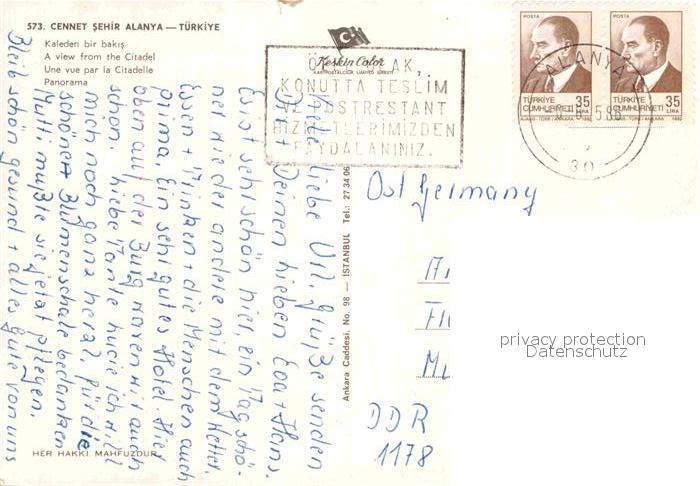 573. CENNET ŞEHİR ALANYA — TÜRKİYE
Kaleden bir bakış
A view from the Citadel
Une vue par la Citadelle
Panorama
Keskin Color
KARTPOSTALCILIK LIMITED ŞİRKETİ
KONUTTA TESLİM
VE POSTRESTANT
HİZMETLERİMİZDEN
FAYDALANINIZ.
POSTA
35
LİRA
TÜRKİYE
CUMHURİYETİ
POSTA
35
LİRA
TÜRKİYE
CUMHURİYETİ
ALANYA
30
Ost Germany
DDR
1178
privacy protection
Datenschutz
Ankara Caddesi, No. 98 — İSTANBUL Tel.: 27 34 06
liebe Grüße senden
Dir Deinen lieben Eva + Hans.
Es ist sehr schön hier, ein Tag schö-
ner wie der andere mit dem Wetter.
Essen + Trinken + die Menschen auch
prima. Ein sehr gutes Hotel. Hier
oben auf der Burg waren wir auch
schon. liebe Tante Lucie ich will
mich noch ganz herzl. für die
schönen Blumenschale bedanken
Mutti mußte sie jetzt pflegen.
Bleib schön gesund + alles Gute von uns
HER HAKKI MAHFUZDUR